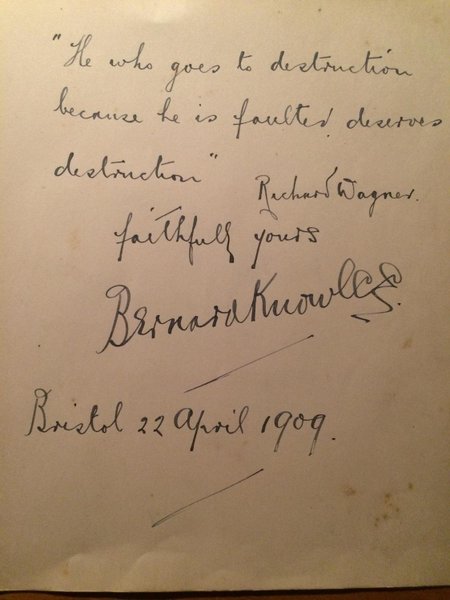 "He who goes to destruction
because he is faulted deserves
destruction"
Richard Wagner.
faithfully yours
Bernard Knowles.
Bristol 22 April 1909.